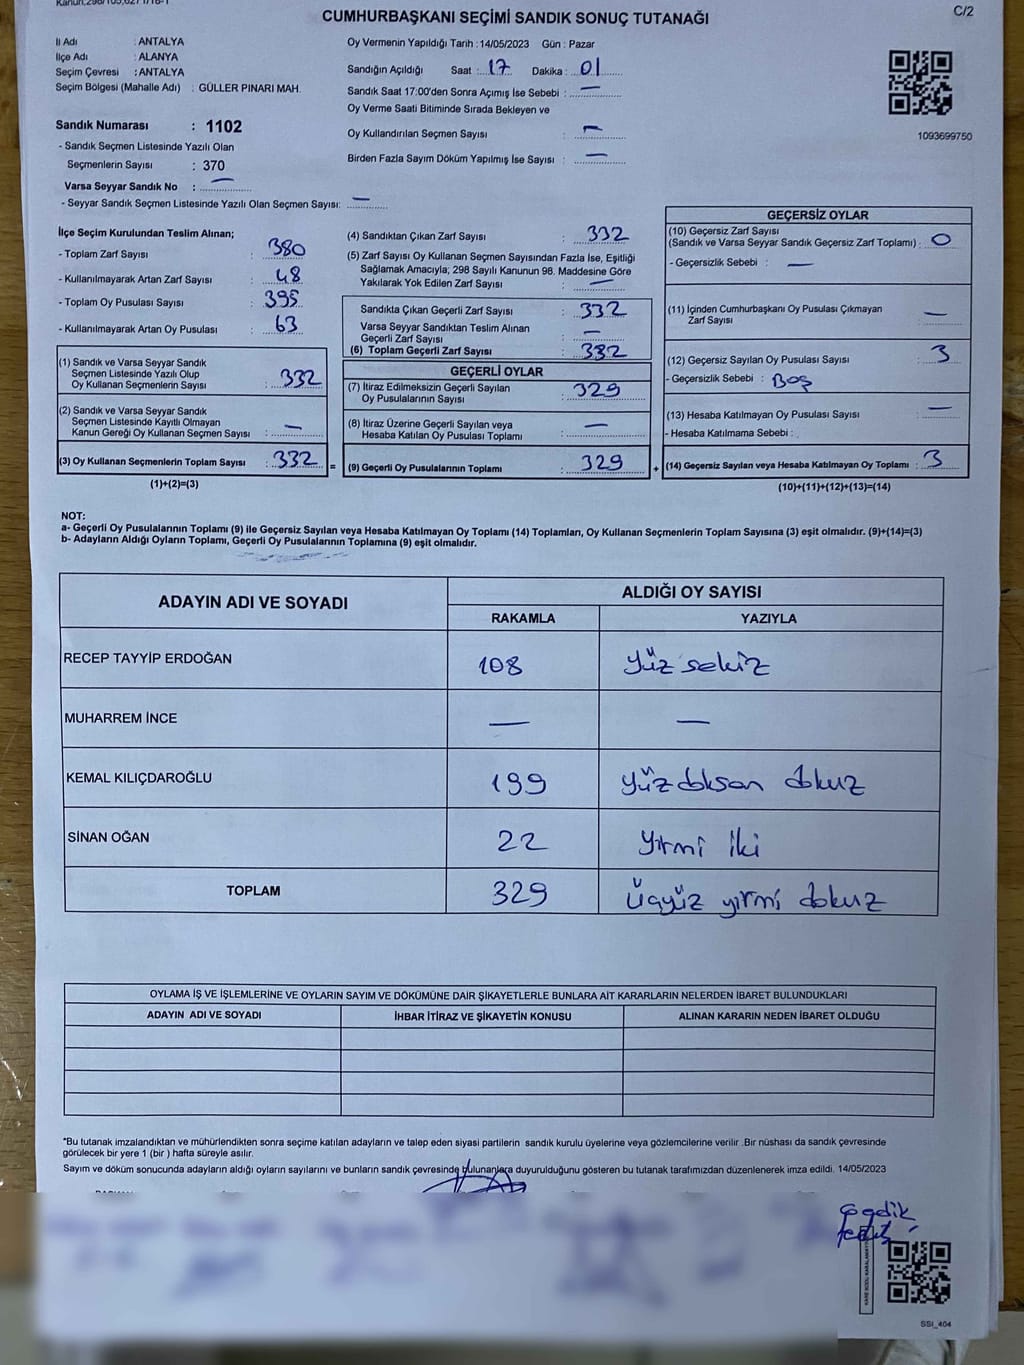 CUMHURBAŞKANI SEÇİMİ SANDIK SONUÇ TUTANAĞI
C/2
İl Adı : ANTALYA
İlçe Adı : ALANYA
Seçim Çevresi : ANTALYA
Seçim Bölgesi (Mahalle Adı) : GÜLLER PINARI MAH.
Sandık Numarası : 1102
- Sandık Seçmen Listesinde Yazılı Olan
Seçmenlerin Sayısı : 370
Varsa Seyyar Sandık No : —
- Seyyar Sandık Seçmen Listesinde Yazılı Olan Seçmen Sayısı: —
Oy Vermenin Yapıldığı Tarih : 14/05/2023 Gün : Pazar
Sandığın Açıldığı Saat : 17 Dakika : 01
Sandık Saat 17:00'den Sonra Açımış İse Sebebi : —
Oy Verme Saati Bitiminde Sırada Bekleyen ve
Oy Kullandırılan Seçmen Sayısı : —
Birden Fazla Sayım Döküm Yapılmış İse Sayısı : —
1093699750
İlçe Seçim Kurulundan Teslim Alınan;
- Toplam Zarf Sayısı : 380
- Kullanılmayarak Artan Zarf Sayısı : 48
- Toplam Oy Pusulası Sayısı : 395
- Kullanılmayarak Artan Oy Pusulası : 63
(1) Sandık ve Varsa Seyyar Sandık
Seçmen Listesinde Yazılı Olup
Oy Kullanan Seçmenlerin Sayısı : 332
(2) Sandık ve Varsa Seyyar Sandık
Seçmen Listesinde Kayıtlı Olmayan
Kanun Gereği Oy Kullanan Seçmen Sayısı : —
(3) Oy Kullanan Seçmenlerin Toplam Sayısı : 332 =
(1)+(2)=(3)
(4) Sandıktan Çıkan Zarf Sayısı : 332
(5) Zarf Sayısı Oy Kullanan Seçmen Sayısından Fazla İse, Eşitliği
Sağlamak Amacıyla; 298 Sayılı Kanunun 98. Maddesine Göre
Yakılarak Yok Edilen Zarf Sayısı : —
Sandıkta Çıkan Geçerli Zarf Sayısı : 332
Varsa Seyyar Sandıktan Teslim Alınan
Geçerli Zarf Sayısı : —
(6) Toplam Geçerli Zarf Sayısı : 332
GEÇERLİ OYLAR
(7) İtiraz Edilmeksizin Geçerli Sayılan
Oy Pusulalarının Sayısı : 329
(8) İtiraz Üzerine Geçerli Sayılan veya
Hesaba Katılan Oy Pusulası Toplamı : —
(9) Geçerli Oy Pusulalarının Toplamı : 329 +
GEÇERSİZ OYLAR
(10) Geçersiz Zarf Sayısı
(Sandık ve Varsa Seyyar Sandık Geçersiz Zarf Toplamı) : 0
- Geçersizlik Sebebi : —
(11) İçinden Cumhurbaşkanı Oy Pusulası Çıkmayan
Zarf Sayısı : —
(12) Geçersiz Sayılan Oy Pusulası Sayısı : 3
- Geçersizlik Sebebi : Boş
(13) Hesaba Katılmayan Oy Pusulası Sayısı : —
- Hesaba Katılmama Sebebi :
(14) Geçersiz Sayılan veya Hesaba Katılmayan Oy Toplamı : 3
(10)+(11)+(12)+(13)=(14)
NOT:
a- Geçerli Oy Pusulalarının Toplamı (9) ile Geçersiz Sayılan veya Hesaba Katılmayan Oy Toplamı (14) Toplamları, Oy Kullanan Seçmenlerin Toplam Sayısına (3) eşit olmalıdır. (9)+(14)=(3)
b- Adayların Aldığı Oyların Toplamı, Geçerli Oy Pusulalarının Toplamına (9) eşit olmalıdır.
ADAYIN ADI VE SOYADI
ALDIĞI OY SAYISI
RAKAMLA YAZIYLA
RECEP TAYYİP ERDOĞAN 108 Yüz sekiz
MUHARREM İNCE — —
KEMAL KILIÇDAROĞLU 199 Yüz doksan dokuz
SİNAN OĞAN 22 Yirmi iki
TOPLAM 329 Üçyüz yirmi dokuz
OYLAMA İŞ VE İŞLEMLERİNE VE OYLARIN SAYIM VE DÖKÜMÜNE DAİR ŞİKAYETLERLE BUNLARA AİT KARARLARIN NELERDEN İBARET BULUNDUKLARI
ADAYIN ADI VE SOYADI İHBAR İTİRAZ VE ŞİKAYETİN KONUSU ALINAN KARARIN NEDEN İBARET OLDUĞU
*Bu tutanak imzalandıktan ve mühürlendikten sonra seçime katılan adayların ve talep eden siyasi partilerin sandık kurulu üyelerine veya gözlemcilerine verilir .Bir nüshası da sandık çevresinde
görülecek bir yere 1 (bir ) hafta süreyle asılır.
Sayım ve döküm sonucunda adayların aldığı oyların sayılarını ve bunların sandık çevresinde bulunanlara duyurulduğunu gösteren bu tutanak tarafımızdan düzenlenerek imza edildi. 14/05/2023
SSI_404